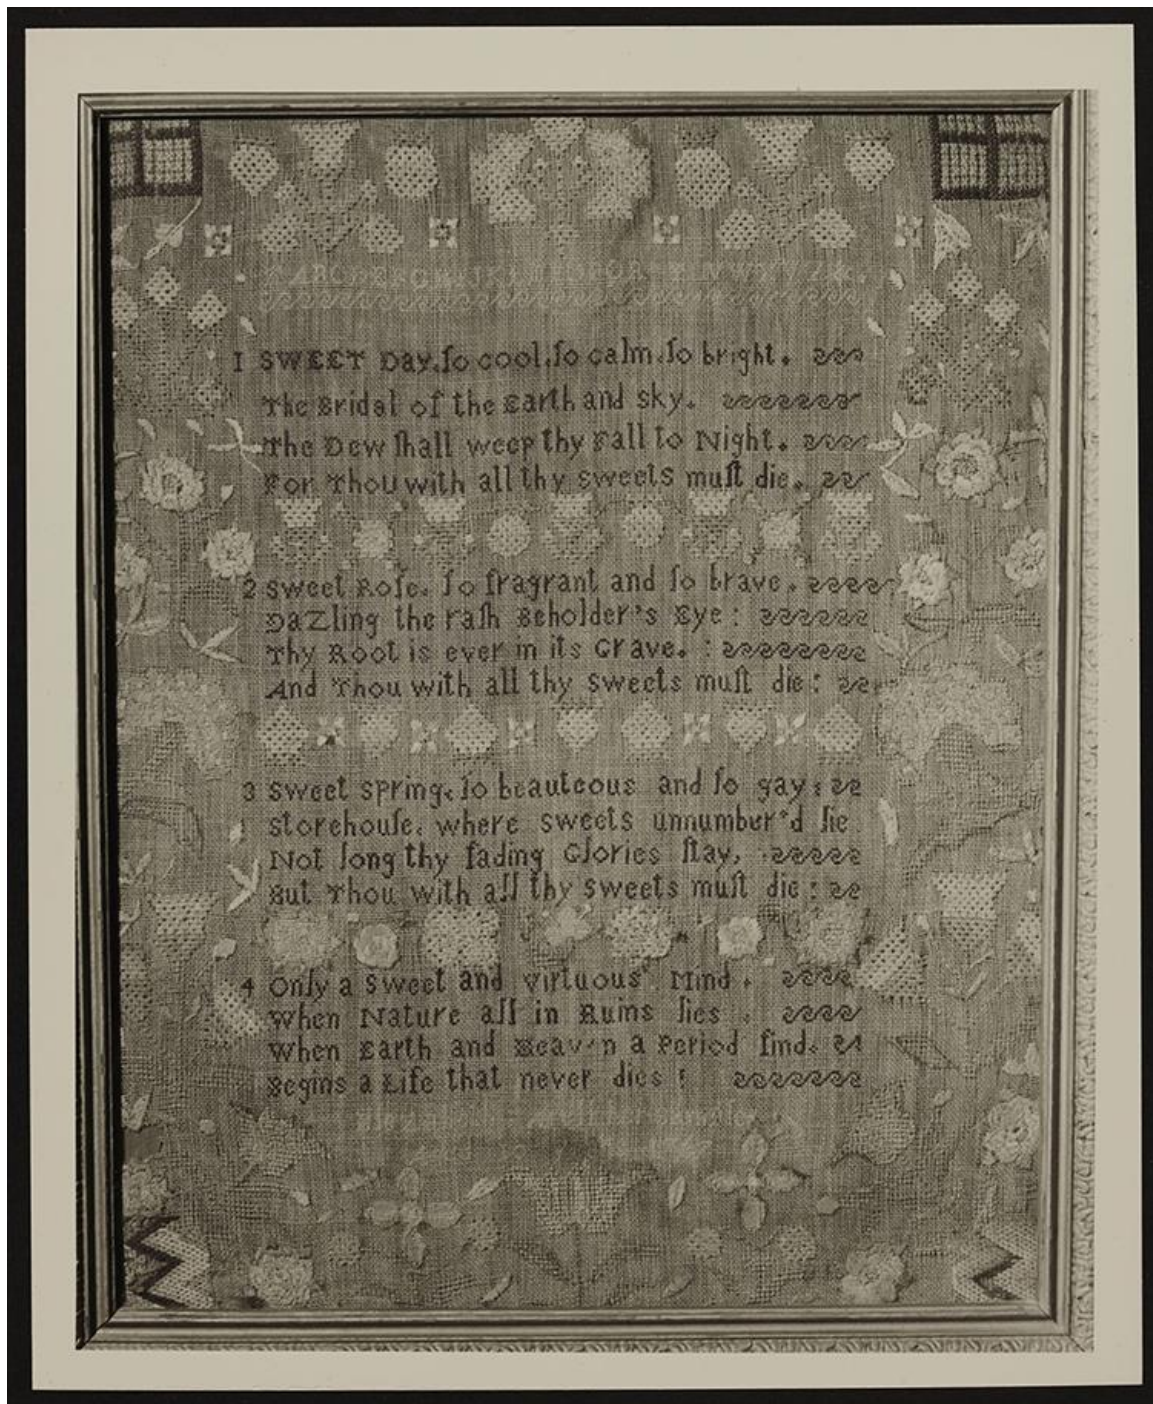 1 SWEET Day, ſo cool, ſo calm, ſo bright.
The Bridal of the Earth and Sky.
The Dew ſhall weep thy Fall to Night.
For Thou with all thy Sweets muſt die.
2 Sweet Roſe, ſo fragrant and ſo brave.
DaZling the raſh Beholder's Eye:
Thy Root is ever in its Grave.
And Thou with all thy Sweets muſt die:
3 Sweet Spring, ſo beauteous and ſo gay:
Storehouſe, where Sweets unnumber'd lie
Not long thy fading Glories ſtay,
But Thou with all thy Sweets muſt die:
4 Only a Sweet and Virtuous Mind.
When Nature all in Ruins lies.
When Earth and Heaven a Period find.
Begins a Life that never dies: